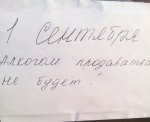 1 Сентября
Алкоголь продаваться
не будет!